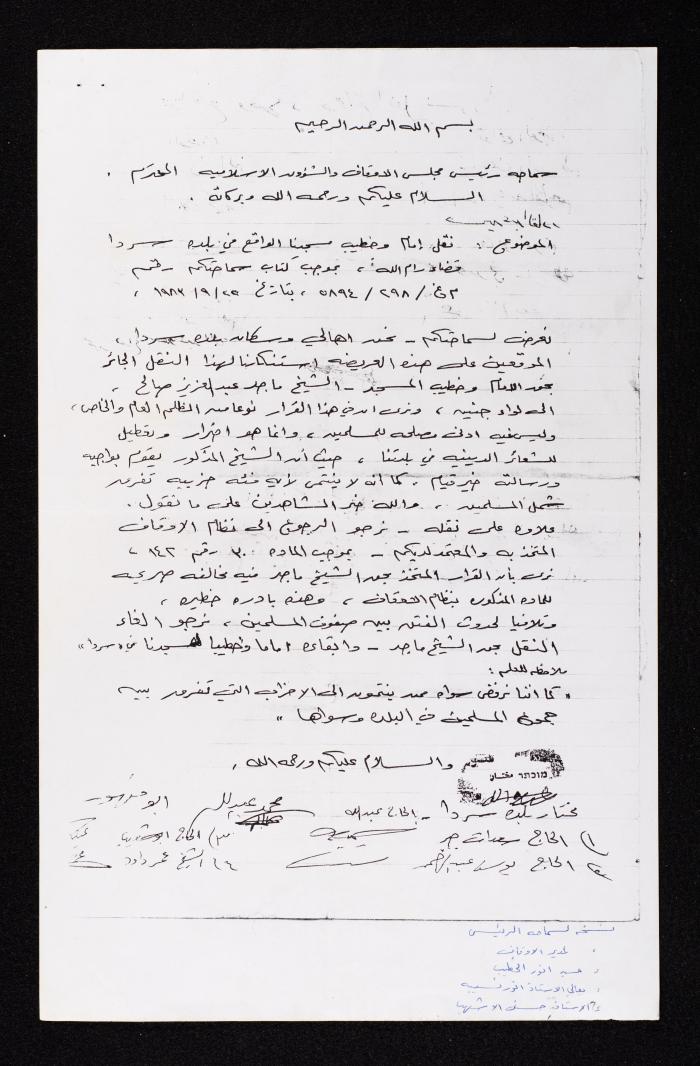 بسم الله الرحمن الرحيم
سماحة رئيس مجلس الاوقاف والشؤون الاسلامية المحترم .
السلام عليكم ورحمة الله وبركاته .
الموضوع : نقل إمام وخطيب مسجدنا الواقع في بلدة سردا
قضاء رام الله ، بموجب كتاب سماحتكم رقم
م غ / ٢٩٨ / ٥٨٩٤ ، بتاريخ ٢٢ / ٩ / ١٩٨٦ ،
نعرض لسماحتكم - نحن اهالي وسكان بلدة سردا ،
الموقعين على هذه العريضة استنكارنا لهذا النقل الجائر
بحق الامام وخطيب المسجد - الشيخ ماجد عبد العزيز صالح ،
الى لواء جنين ، ونرى ان في هذا القرار نوعا من الظلم العام والخاص ،
وليس فيه ادنى مصلحة للمسلمين ، وانما هو اضرار وتعطيل
للشعائر الدينية في بلدتنا ، حيث أن الشيخ المذكور يقوم بواجبه
ورسالته خير قيام ، كما انه لا ينتمي لأي فئة حزبية تفرق
شمل المسلمين ، والله خير الشاهدين على ما نقول .
علاوة على نقله - نرجو الرجوع الى نظام الاوقاف
المتخذ به والمعتمد لديكم - بموجب المادة ٣٠ رقم ١٤٢ ،
نرى بأن القرار المتخذ بحق الشيخ ماجد فيه مخالفة صريحة
للمادة المذكورة بنظام الاوقاف ، وهذه بادرة خطيرة ،
وتلافيا لحدوث الفتن بين صفوف المسلمين ، نرجو الغاء
النقل بحق الشيخ ماجد - وابقاءه اماما وخطيبا لمسجدنا في " سردا "
ملاحظة للعلم :
" كما اننا نرفض سواه ممن ينتمون الى الاحزاب التي تفرق بين
جموع المسلمين في البلدة وسواها "
والسلام عليكم ورحمة الله ،
مختار بلدة سردا - الحاج عبد الله
١) الحاج سعدات ٣) الحاج
٢) الحاج يوسف عبد الرحمن ٤) الشيخ عمر داود
نسخة لسماحة الرئيس
" لمدير الاوقاف
" السيد انور الخطيب
" معالي الاستاذ انور نسيبة
" الاستاذ حسن